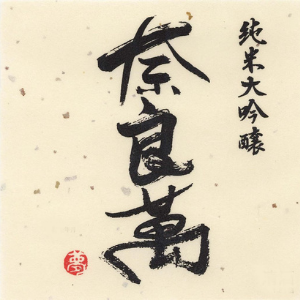 純米大吟醸
奈良萬
夢